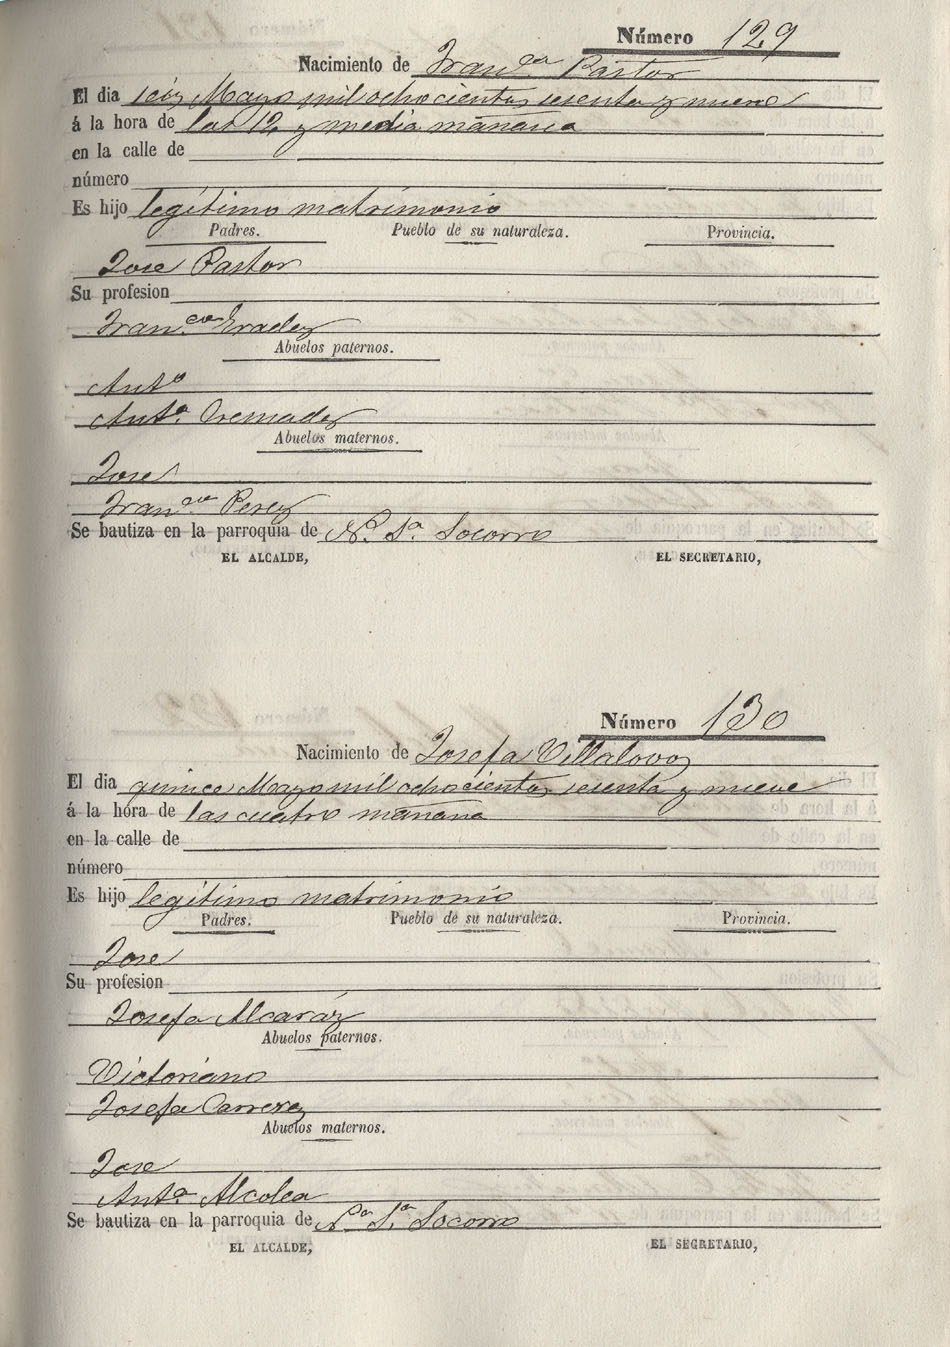 Número 129
Nacimiento de Fran.ca Pastor
El dia seis Mayo mil ochocientos sesenta y nueve
á la hora de las 12 y media mañana
en la calle de
número
Es hijo legítimo matrimonio
Padres. Pueblo de su naturaleza. Provincia.
Jose Pastor
Su profesion
Fran.ca
Abuelos paternos.
Ant.o
Ant.a Gremades
Abuelos maternos.
Jose
Fran.ca Perez
Se bautiza en la parroquia de N.a S.a Socorro
EL ALCALDE, EL SECRETARIO,
Número 130
Nacimiento de Josefa Villalovoz
El dia quince Mayo mil ochocientos sesenta y nueve
á la hora de las cuatro mañana
en la calle de
número
Es hijo legítimo matrimonio
Padres. Pueblo de su naturaleza. Provincia.
Jose
Su profesion
Josefa Alcaráz
Abuelos paternos.
Victoriano
Josefa Carrerez
Abuelos maternos.
Jose
Ant.a Alcolea
Se bautiza en la parroquia de N.a S.a Socorro
EL ALCALDE, EL SECRETARIO,